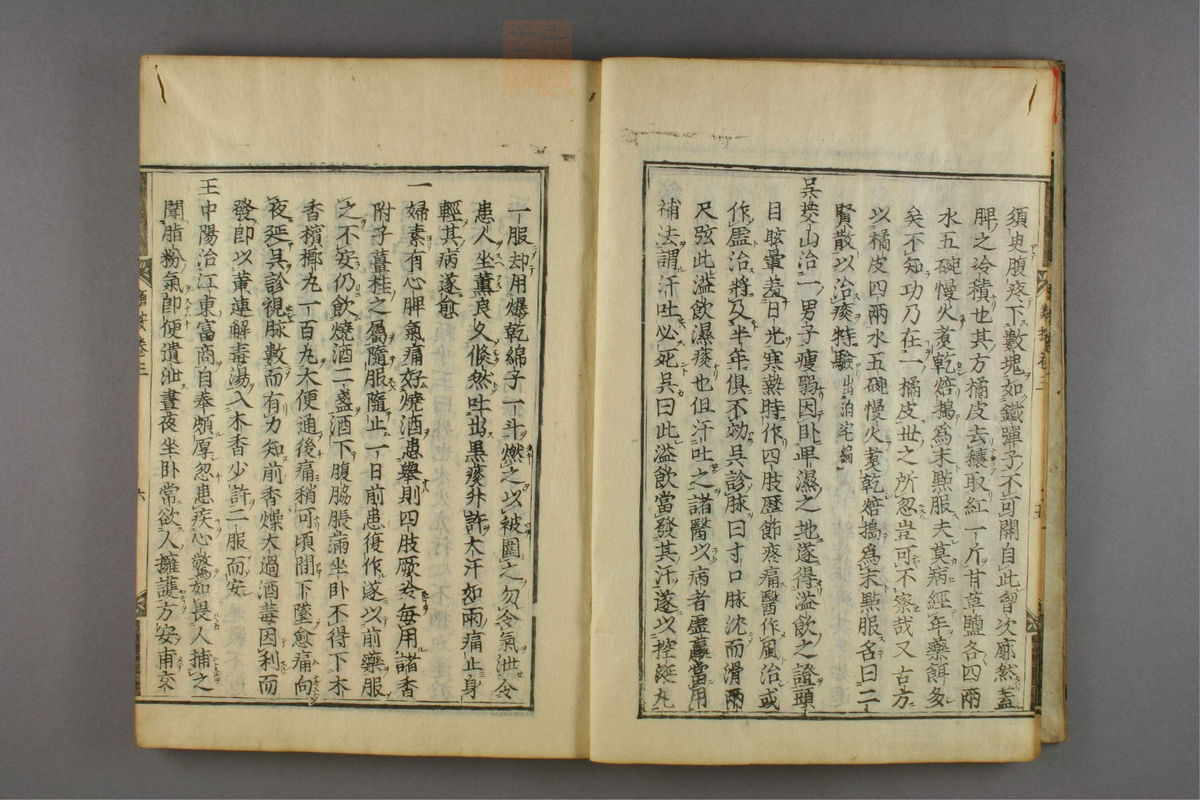 須臾腹疼下數塊如鐵彈子不可開自此曾次廓然蓋
脾之冷積也其方橘皮去穰取紅一斤甘草鹽各四兩
水五碗慢火煮乾焙搗爲末㸃服夫莫病經年藥餌多
矣不知功乃在一橘皮世之所忽豈可不察哉又古方
以橘皮四兩水五碗慢火煮乾焙搗爲末㸃服名曰二
腎散以治痰特驗出泊宅編
吳茭山治一男子瘦弱因卧卑濕之地遂得溢飲之證頭
目眩暈羞日光寒熱時作四肢歷節疼痛醫作風治或
作虛治將及半年俱不効吳診脉曰寸口脉沈而滑兩
尺弦此溢飲濕痰也但汗吐之諸醫以病者虛羸當用
補法謂汗吐必死吳曰此溢飲當發其汗遂以控涎丸
一服却用爆乾綿子一斗燃之以被圍之勿令氣泄令
患人坐薰良久倐然吐出黒痰升許大汗如雨痛止身
輕其病遂愈
一婦素有心脾氣痛好燒酒患舉則四肢厥冷每用諸香
附子薑桂之屬隨服隨止一日前患復作遂以前藥服
之不安仍飲燒酒二盞酒下腹脇脹滿坐卧不得下木
香檳榔丸一百丸大便通後痛稍可頃間下墜愈痛向
夜延吳診視脉數而有力知前香燥太過酒毒因利而
發卽以黄連解毒湯入木香少許二服而安
王中陽治江東富商自奉頗厚忽患疾心驚如畏人捕之
聞脂粉氣卽便遺泄晝夜坐卧常欲人擁護方安甫交